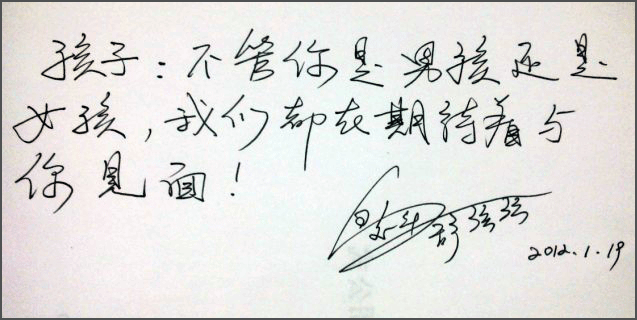 孩子：不管你是男孩还是
女孩，我们都在期待着与
你见面！
舒弦弦
2012.1.19